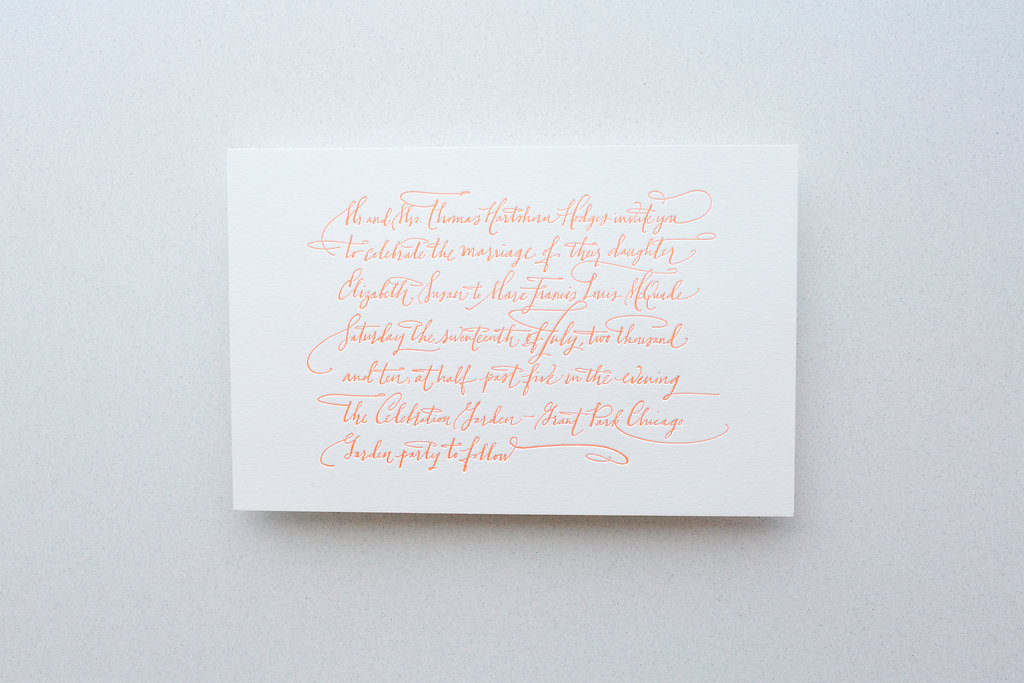 Mr and Mrs. Thomas Hartshorn Hodges invite you
to celebrate the marriage of their daughter
Elizabeth Susan to Marc Francis Louis McQuade
Saturday the seventeenth of July, two thousand
and ten, at half past five in the evening
The Celebration Garden – Grant Park Chicago
Garden party to follow